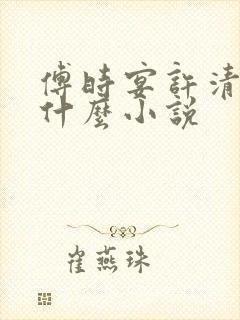 傅時宴許清
什麼小說
崔燕珠